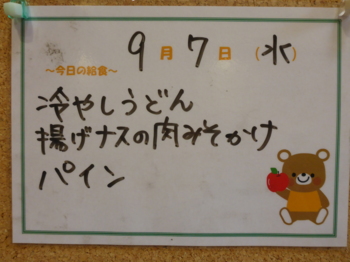 9月7日(水)
~今日の給食~
冷やしうどん
揚げナスの肉みそかけ
パイン